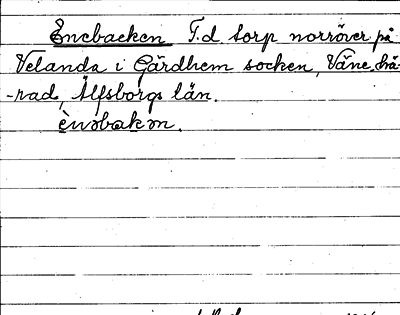 Enebacken F.d. torp norröver på
Velanda i Gärdhem socken, Väne hä-
-rad, Älfsborgs län.
ènəbakən.